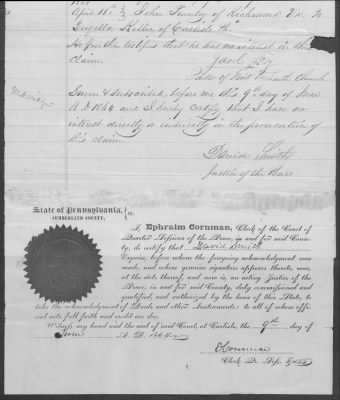 April 11th John Turnly of Richmond Va. to
Keller of Carlisle Pa.
He further testifies that he has no interest in this
claim.
Jacob Fry
Pastor of First Lutheran Church
Marriage
Sworn & subscribed before me this 9th day of June
A.D. 1864 and I hereby certify that I have no
interest directly or indirectly in the prosecution of
this claim.
David Smith
Justice of the Peace
State of Pennsylvania,
CUMBERLAND COUNTY, } ss.
I, Ephraim Cornman, Clerk of the Court of
Quarter Sessions of the Peace, in and for said Coun-
ty, do certify that David Smith
Esquire, before whom the foregoing acknowledgment was
made, and whose genuine signature appears thereto, was,
at the date thereof and now is, an acting Justice of the
Peace, in and for said County, duly commissioned and
qualified, and authorized by the laws of this State, to
take the acknowledgment of Deeds and other Instruments; to all of whose offi-
cial acts full faith and credit are due.
Witness my hand and the seal of said Court, at Carlisle, the 9th day of
June A. D. 1864
E Cornman
Clerk Q. Sess.